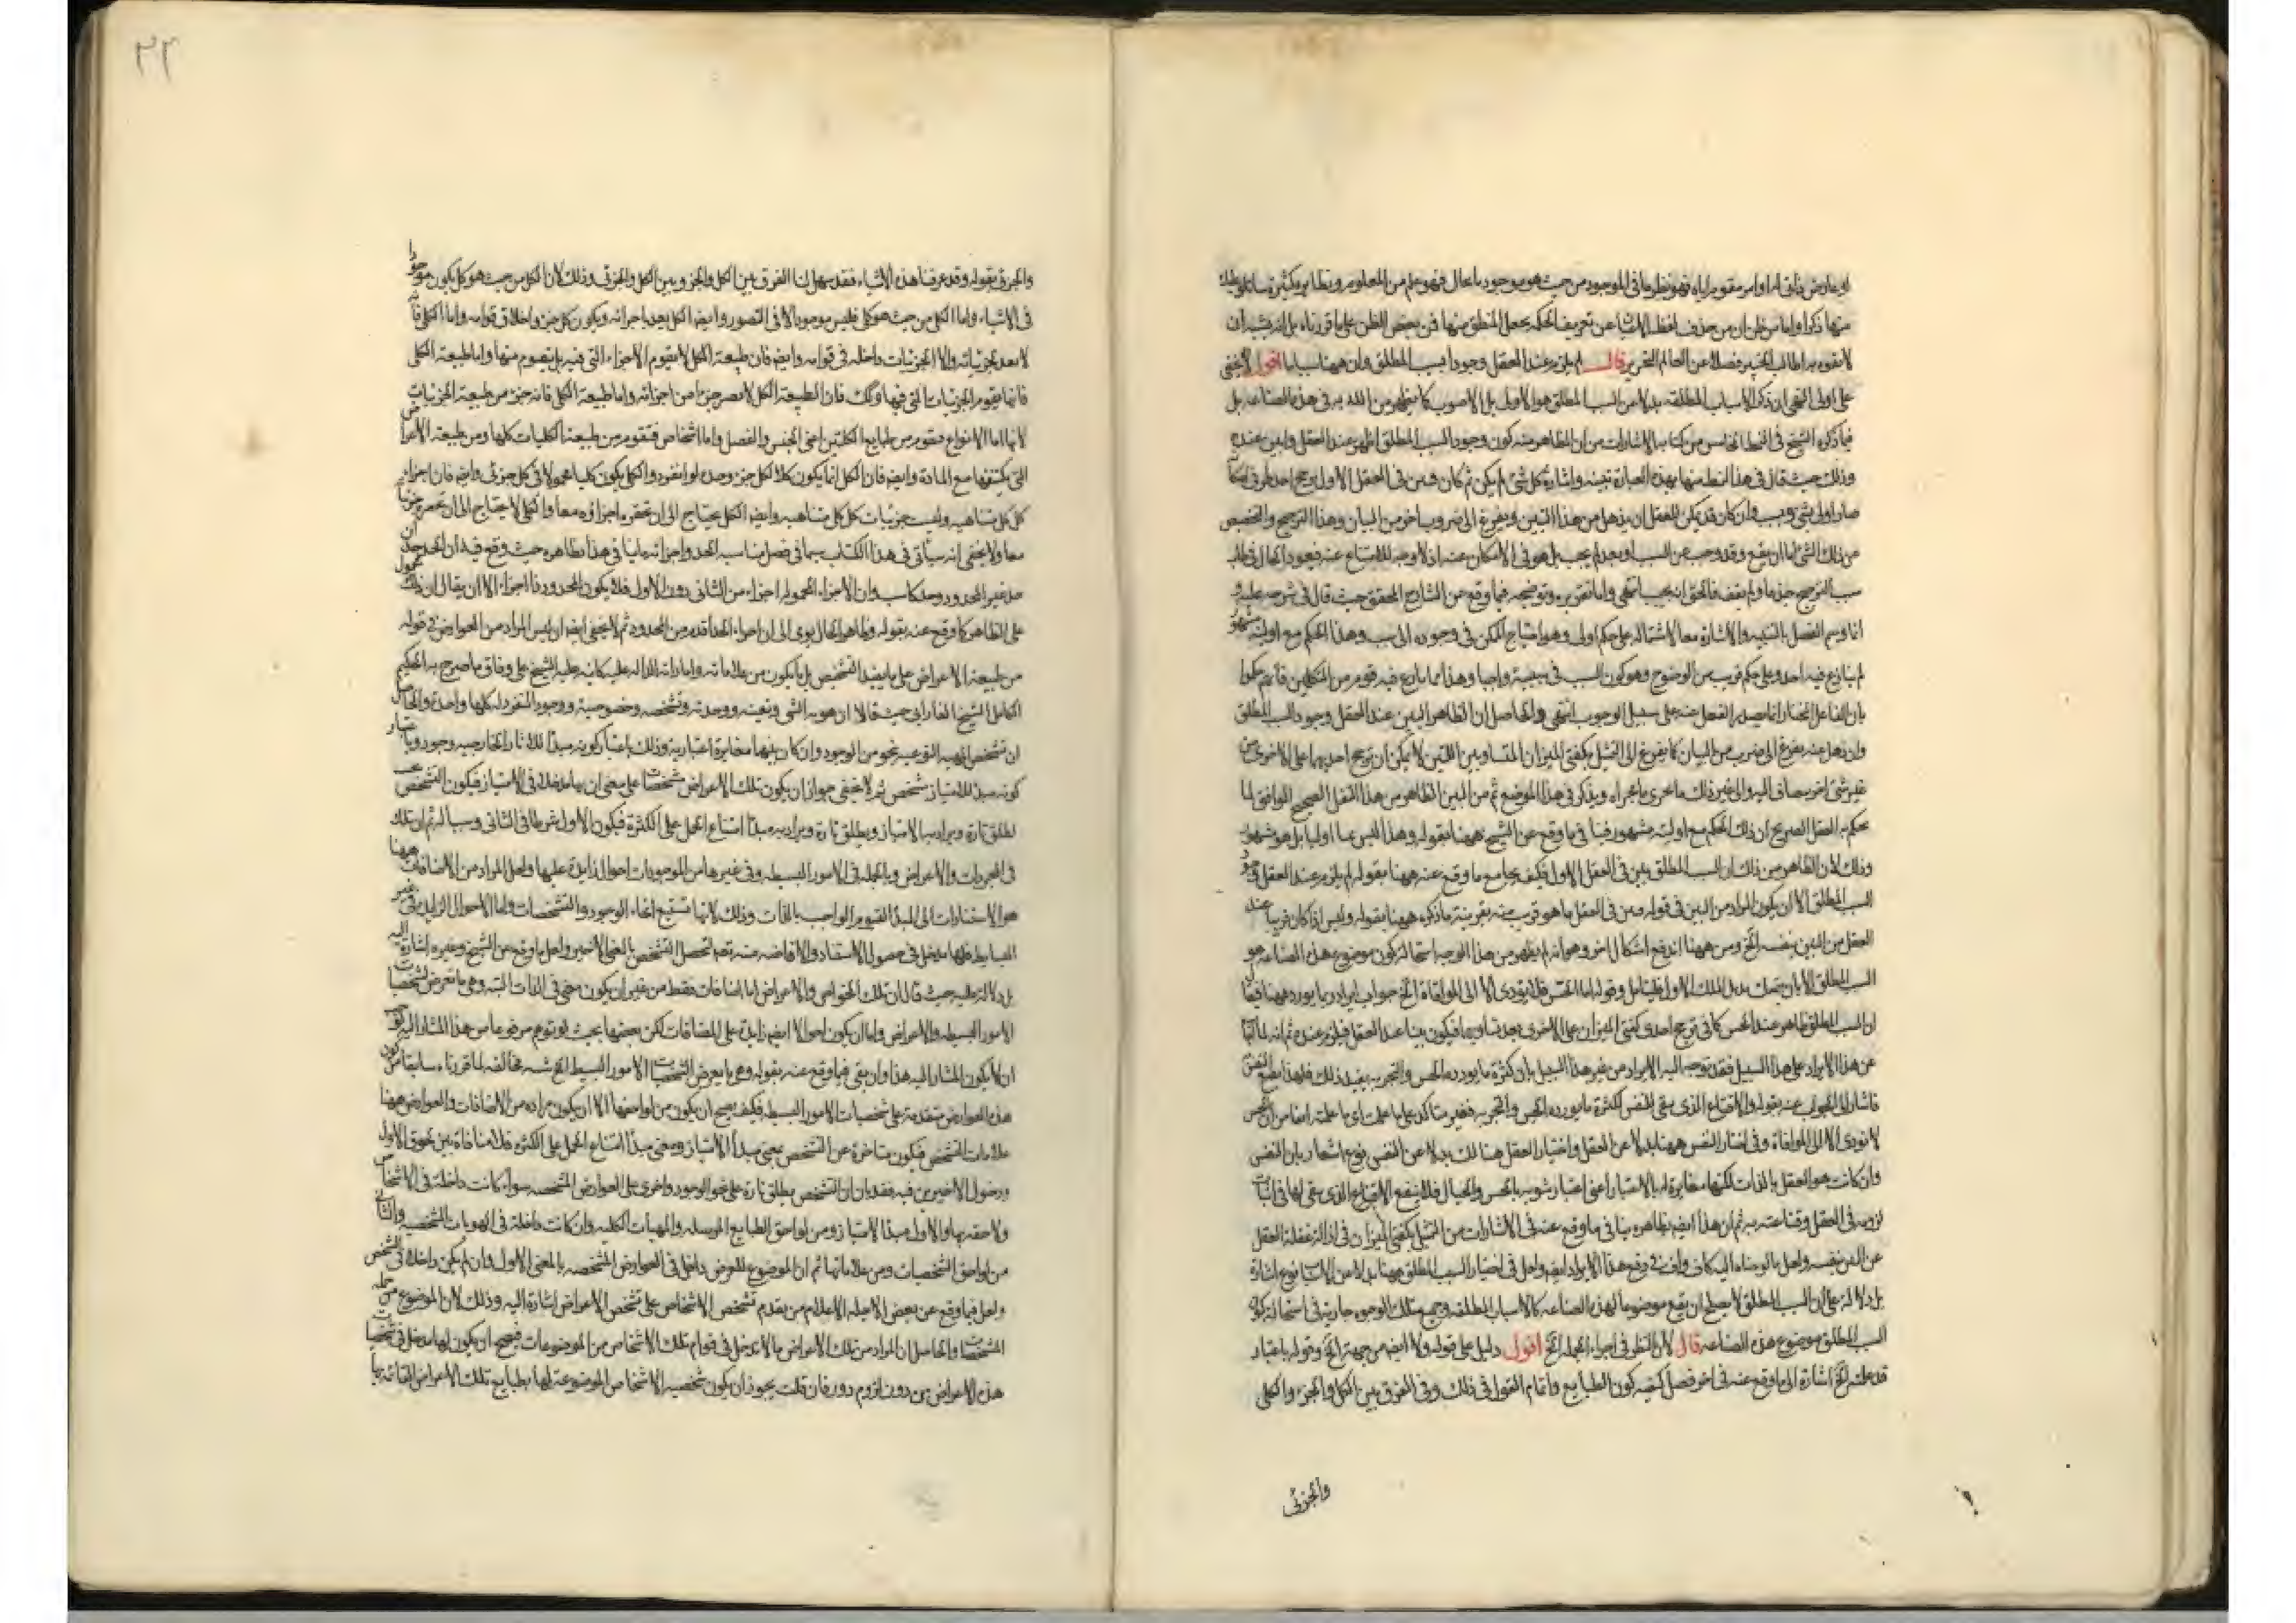 او عارض ذاتى له او امر مقوم اياه فهو نظر ما فى الموجود من حيث هو موجود بما عال فهو علم من العلوم ونظايره كثيرة
منها ذكرا واما من ظن ان من حذف لفظ الاشياء عن تعريف الحكمه يجعل المنطق منها فمن بعض الظن على ما قررناه بل انه يشبه ان
لا يتفوه به اطالب الخير فضلا عن العالم النحرير قال لم يلزم عند العقل وجود السبب المطلق وان ههنا سببا ما اقول لا يخفى
على اولى النهى ان ذكر الاسباب المطلقه بدلا من السبب المطلق هو الاولى بل الاصوب كما يظهر من التدبر فى هذه الصناعه بل
فيما ذكره الشيخ فى النمط الخامس من كتابه الاشارات من ان الظاهر منه كون وجود السبب المطلق اظهر عند العقل وابين عنده
وذلك حيث قال فى هذا النمط منها بهذه العبارة تنبيه واشارة كل شئ لم يكن ثم كان فبين فى العقل الاول ان ترجح احد طرفى امكانه
صار اولى بشئ وبسبب وان كان قد يمكن للعقل ان يذهل عن هذا التبين ويفزع الى ضروب اخر من البيان وهذا الترجيح والتخصيص
من ذلك الشئ اما ان يقع وقد وجب عن السبب او بعد لم يجب بل هو فى الامكان عنه اذ لا وجه للامتناع عنه فيعود الحال فى طلب
سبب الترجيح جذعا ولم يقف فالحق انه يجب انتهى واما تقريره وتوضيحه فيما وقع عن الشارح المحقق حيث قال فى شرحه عليه
انما وسم الفصل بالتنبيه والاشارة معا لاشتماله على حكم اولى وهو احتياج الممكن فى وجوده الى سبب وهذا الحكم مع اوليته مشهور
لم ينازع فيه احد وعلى حكم قريب من الوضوح وهو كون السبب فى سببيته واجبا وهذا مما ينازع فيه قوم من المتكلمين فانهم حكموا
بان الفاعل المختار انما يصدر الفعل عنه على سبيل الوجوب انتهى والحاصل ان الظاهر البين عند العقل وجود السبب المطلق
وان ذهل عنه يفزع الى ضرب من البيان كما يفزع الى التمثل بكفتى الميزان المتساويين اللتين لا يمكن ان ترجح احديهما على الاخرى من
غير شئ اخر يضاف اليه والى غير ذلك مما يجرى مجراه ويذكر فى هذا الموضع ثم من البين الظاهر من هذا النقل الصحيح الموافق لما
يحكم به العقل الصريح ان ذلك الحكم مع اوليته مشهور فينافى ما وقع عن الشيخ ههنا بقوله وهذا ليس بينا اوليا بل هو مشهور
وذلك لان الظاهر من ذلك ان السبب المطلق بين فى العقل الاول فكيف يجامع ما وقع عنه ههنا بقوله لم يلزم عند العقل وجود
السبب المطلق الا ان يكون المراد من البين فى قوله فبين فى العقل ما هو قريب منه بقرينة ما ذكره ههنا بقوله وليس اذا كان قريبا عند
العقل من البين بنفسه الخ ومن ههنا اندفع اشكال اخر وهو انه لم يظهر من هذا الوجه استحالة كون موضوع هذه الصناعه هو
السبب المطلق الا بان يتمسك بذيل المسلك الاول فليتامل وقوله اما الحس فلا يؤدى الا الى الموافاة الخ جواب ايراد ربما يورد ههنا
ان السبب المطلق ظاهر عند الحس كما فى ترجح احدى كفتى الميزان على الاخرى بعد تساويهما فيكون بينا عند العقل فيلزم عنده ثم انه
عن هذا الايراد على هذا السبيل فقد توجه اليه الايراد من غير هذا السبيل بان كثرة ما يورده الحس والتجربه يفيد ذلك
فاشار الى الجواب عنه بقوله والاقناع الذى يقع للنفس لكثرة ما يورده الحس والتجربه فغير متاكد على ما علمت اى ما علمته
لا تودى الا الى الموافاة وفى اختيار النفس ههنا بدلا عن العقل واختيار العقل هنالك بدلا عن النفس نوع اشعار بان النفس
وان كانت هو العقل بالذات لكنها مغايرة له بالاعتبار اعنى اعتبار شوبه بالحس والخيال فلا ينفع الاقناع الذى يقع لها فى اثبات
لزومه فى العقل وقناعته به ثم ان هذا ايضا بظاهره ينافى ما وقع عنه فى الاشارات من التمثيل بكفتى الميزان فى ازالة غفلة العقل
عن البين بنفسه ولعل ما اومأناه اليه كاف واف فى دفع هذا الايراد ايضا ولعل فى اختيار السبب المطلق ههنا بدلا من الاسباب نوع اشارة
بل دلالة على ان السبب المطلق لا يصلح ان يقع موضوعا لهذه الصناعه كالاسباب المطلقه وجميع تلك الوجوه جارية فى استحالة كون
السبب المطلق موضوع هذه الصناعه قال لان النظر فى اجزاء الجمله الخ اقول دليل على قوله ولا ايضا من جهة الخ وقوله باعتبار
قد علمته الخ اشارة الى ما وقع عنه فى اخر فصل كيفيه كون الطبايع واتمام القول فى ذلك وفى الفرق بين الكل والجزء والكلى
والجزئى
٣٣
والجزئى بقوله وقد عرفنا هذه الاشياء فقد سهل لنا الفرق بين الكل والجزء وبين الكلى والجزئى وذلك لان الكل من حيث هو كل يكون موجودا
فى الاشياء واما الكلى من حيث هو كلى فليس موجودا الا فى التصور وايضا الكل يعد باجزائه ويكون كل جزء داخلا فى قوامه واما الكلى فانه
لا يعد بجزئياته ولا الجزئيات داخله فى قوامه وايضا فان طبيعة الكل لا تقوم الاجزاء التى فيه بل يتقوم منها واما طبيعة الكلى
فانها تقوم الجزئيات التى فيها وكك فان الطبيعة الكل لا تصير جزءا من اجزائه واما طبيعة الكلى فانه جزء من طبيعة الجزئيات
لانها اما الانواع فتقوم من طبايع الكليتين اعنى الجنس والفصل واما الاشخاص فتقوم من طبيعة الكليات كلها ومن طبيعة الاعراض
التى يكتنفها مع المادة وايضا فان الكل انما يكون كلا لكل جزء وحده لو انفرد والكلى يكون كليا محمولا فى كل جزئى وايضا فان اجزاء
كل كل متناهيه وليست جزئيات كل كلى متناهيه وايضا الكل يحتاج الى ان تحضره اجزاؤه معا والكلى لا يحتاج الى ان تحضره جزئياته
معا ولا يخفى انه سيأتى فى هذا الكتاب سيما فى فصل مناسبة الحد واجزائه ما ينافى هذا بظاهره حيث وقع فيه ان الحد
حد غير المحدود وحد كاسب وان الاجزاء المحموله اجزاء من الثانى دون الاول فلا يكون المحدود ذا اجزاء الا ان يقال ان ذلك محمول
على الظاهر كما وقع عنه بقوله وظاهر الحال يومى الى ان اجزاء الحد اقدم من المحدود ثم لا يخفى ايضا ان ليس المراد من العوارض فى قوله
من طبيعة الاعراض على ما يفيد التشخيص بل ما يكون من علاماته واماراته الداله عليه كما نبه عليه الشيخ على وفاق ما صرح به الحكيم
الكامل الشيخ الفارابى حيث قالا ان هوية الشئ وتعينه ووحدته وتشخصه وخصوصيته ووجوده المتفرد له كلها واحدة والحاصل
ان تشخص المهيه النوعيه نحو من الوجود وان كان بينهما مغايرة اعتبارية وذلك باعتبار كونه مبدأ للاثار الخارجيه وجود وباعتبار
كونه مبدأ للامتياز تشخص ثم لا يخفى جواز ان يكون تلك الاعراض مشخصات على معنى ان لها مدخلا فى الامتياز فيكون التشخص
يطلق تارة ويراد به الامتياز ويطلق تارة ويراد به مبدأ امتناع الحمل على الكثرة فيكون الاول شرطا فى الثانى وسببا له ثم ان تلك
فى المجردات والاعراض وبالجمله فى الامور البسيطه وفى غيرها من الموجودات احوال زايدة عليها ولعل المراد من الاضافات ههنا
هو الاستنادات الى المبدأ القيوم الواجب بالذات وذلك لانها تستتبع انحاء الوجود والتشخصات واما الاحوال الزايده فى غير
البسايط فلها مدخل فى حصول الاستناد والافاضه منه ثم تحصل التشخص بالمعنى الاخير ولعل ما وقع عن الشيخ وغيره اشارة اليه
بل دلالة عليه حيث قال ان تلك الخواص والاعراض اما اضافات فقط من غير ان يكون معنى فى الذات البته وهى ما تعرض لشخصيات
الامور البسيطه والاعراض واما ان يكون احوالا ايضا زايدة على المضافات لكن بعضها بحيث لو توهم مرفوعا عن هذا المشار اليه
ان لا يكون المشار اليه هذا وان بقى فيما وقع عنه بقوله وهى ما يعرض لشخصيات الامور البسيطه الخ شبه مخالفه لما قررناه سابقا من كون
هذه العوارض متقدمة على شخصيات الامور البسيطه فكيف يصح ان يكون من لواحقها الا ان يكون مراده من الاضافات والعوارض ههنا
علامات التشخص فيكون متاخرة عن التشخص بمعنى مبدأ الامتياز وبمعنى مبدأ امتناع الحمل على الكثره فلا منافاة بين لحوق الاول
ودخول الاخيرين فيه فقد بان ان التشخص يطلق تارة على نحو الوجود واخرى على العوارض المشخصه سواء كانت داخلة فى الاشخاص
ولاحقه بها والاول مبدأ الامتياز ومن لواحق الطبايع المرسله والمهيات الكليه وان كانت داخلة فى الهويات الشخصيه والثانى
من لواحق الشخصيات ومن علاماتها ثم ان الموضوع للعرض داخل فى العوارض المشخصه بالمعنى الاول وان لم يكن داخلا فى الشخص
ولعل فيما وقع عن بعض الاجله الاعلام من تقدم تشخص الاشخاص على تشخص الاعراض اشارة اليه وذلك لان الموضوع من جمله
المشخصات والحاصل ان المراد من تلك الاعراض ما لا تدخل فى قوام تلك الاشخاص من الموضوعات فيصح ان يكون لها مدخل فى تشخصيات
هذه الاعراض من دون لزوم دور فان قلت يجوز ان يكون شخصيه الاشخاص الموضوعة لها بطبايع تلك الاعراض القائمة بها